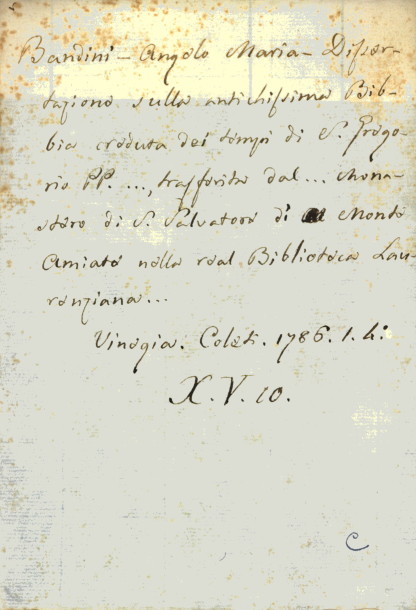 Bandini – Angelo Maria – Disser-
tazione sulla antichissima Bib-
bia creduta dei tempi di S. Grego-
rio PP. ...., trasferita dal ... Mona-
stero di S. Salvatore di Monte
Amiato nella real Biblioteca Lau-
renziana ...
Vinegia. Coleti. 1786. 1. 4:
X. V. 10.
C